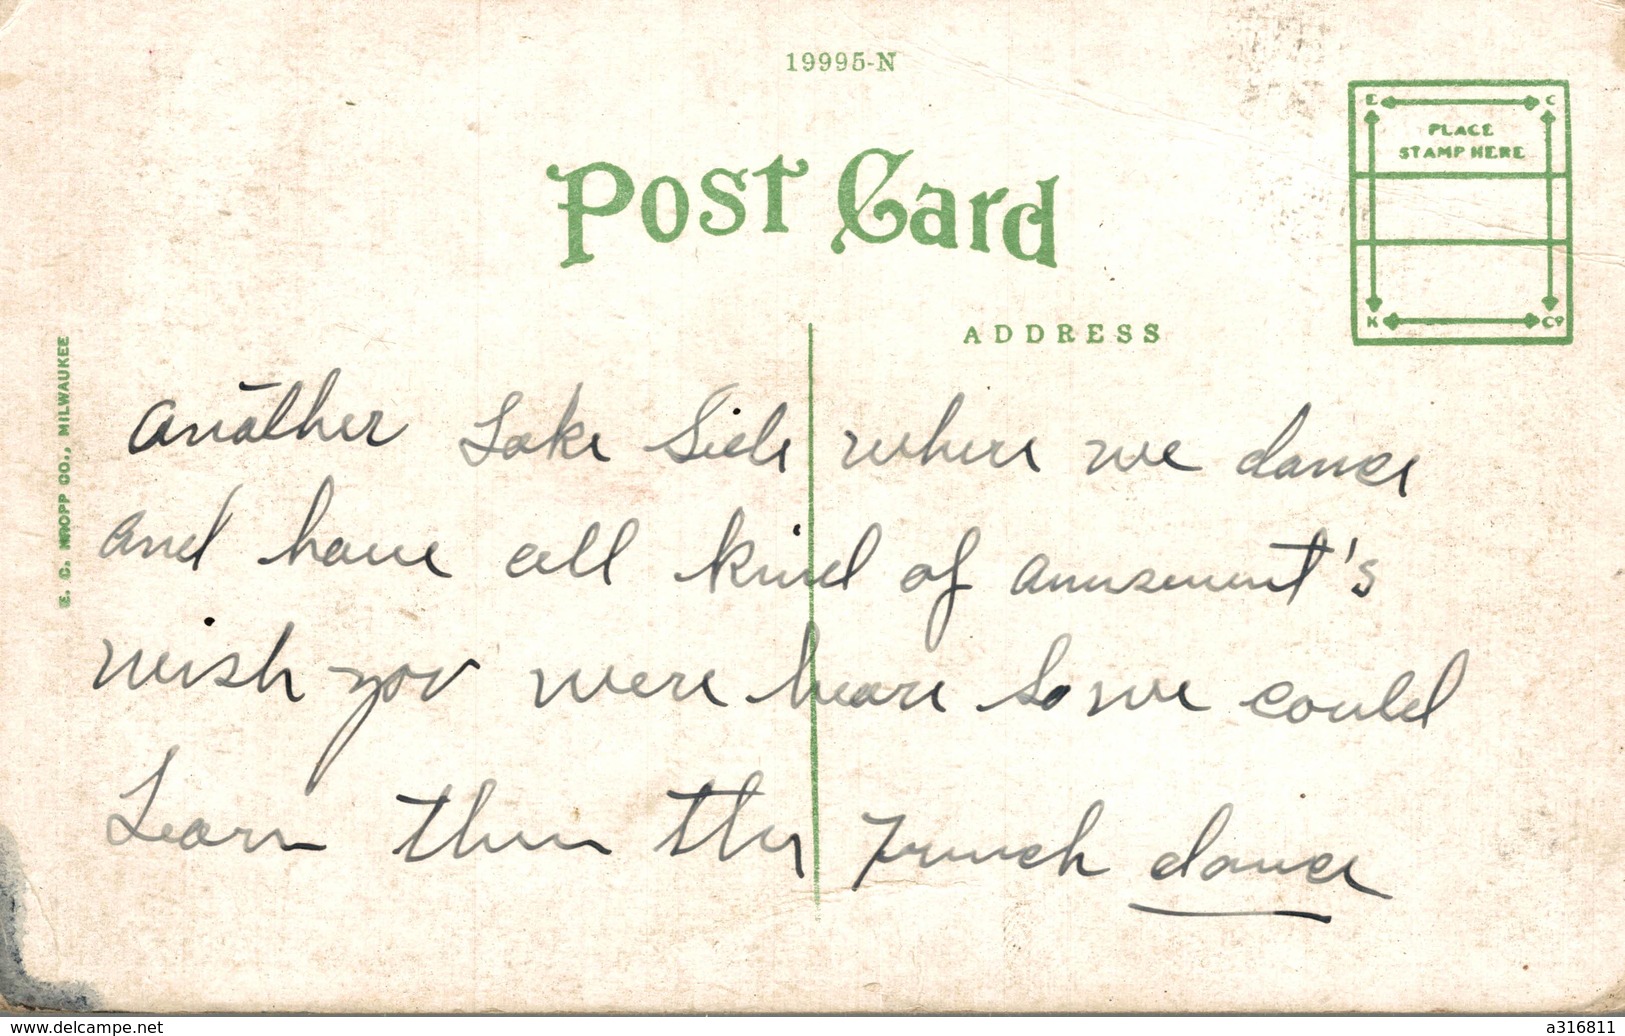 19995-N
Post Card
E C
PLACE
STAMP HERE
K Co
ADDRESS
E. C. KROPP CO., MILWAUKEE
Another Lake Side where we dance
and have all kind of amusement's
wish you were heare so we could
Learn them the French dance
www.delcampe.net
a316811